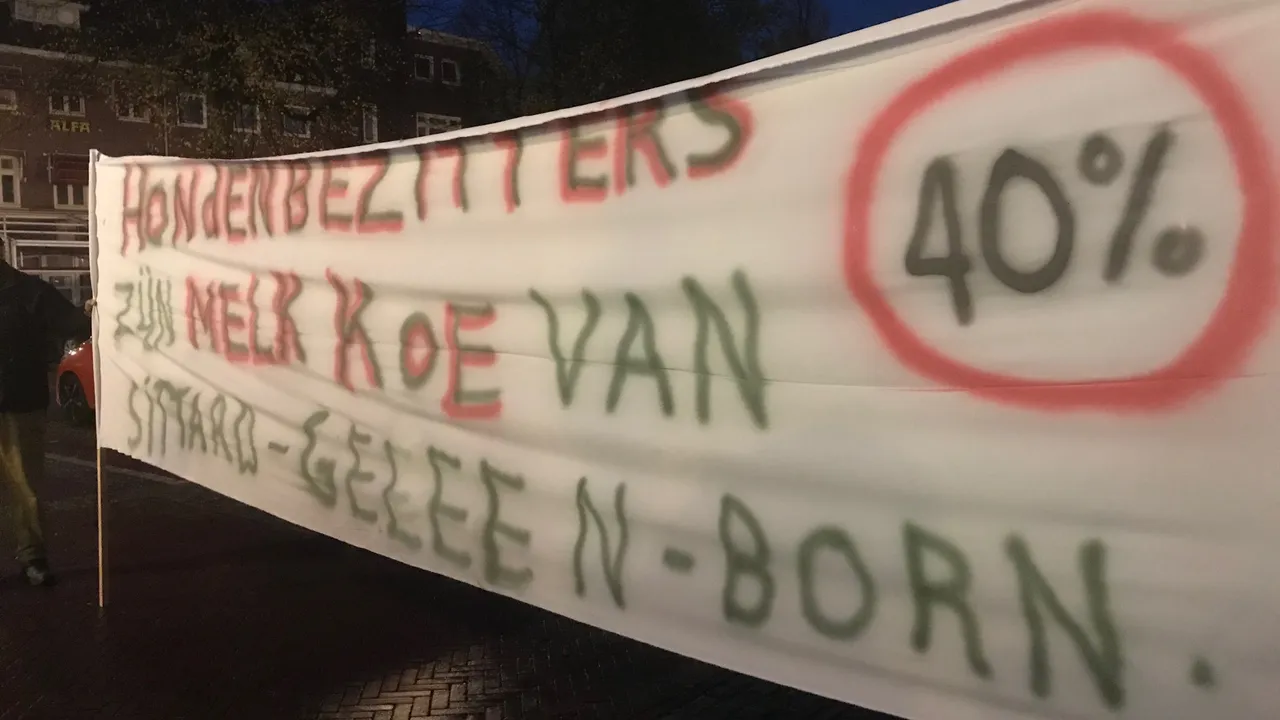 ALFA
HONDENBEZITTERS
ZIJN MELK KOE VAN
SITTARD-GELEEN-BORN.
40%